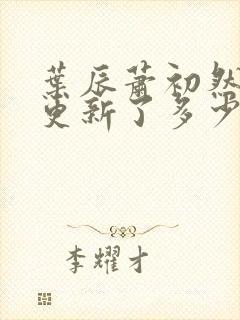 葉辰蕭初然
更新了多少
李耀才